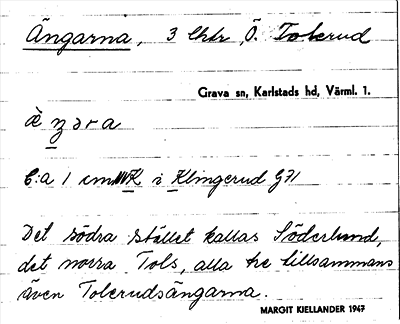 Ängarna, 3 lhtr, Ö. Tolerud
Grava sn, Karlstads hd, Värml. 1.
C:a 1 cm NV K i Klingerud G71
Det södra stället kallas Söderlund,
det norra Tols, alla tre tillsammans
även Tolerudsängarna.
MARGIT KJELLANDER 1947